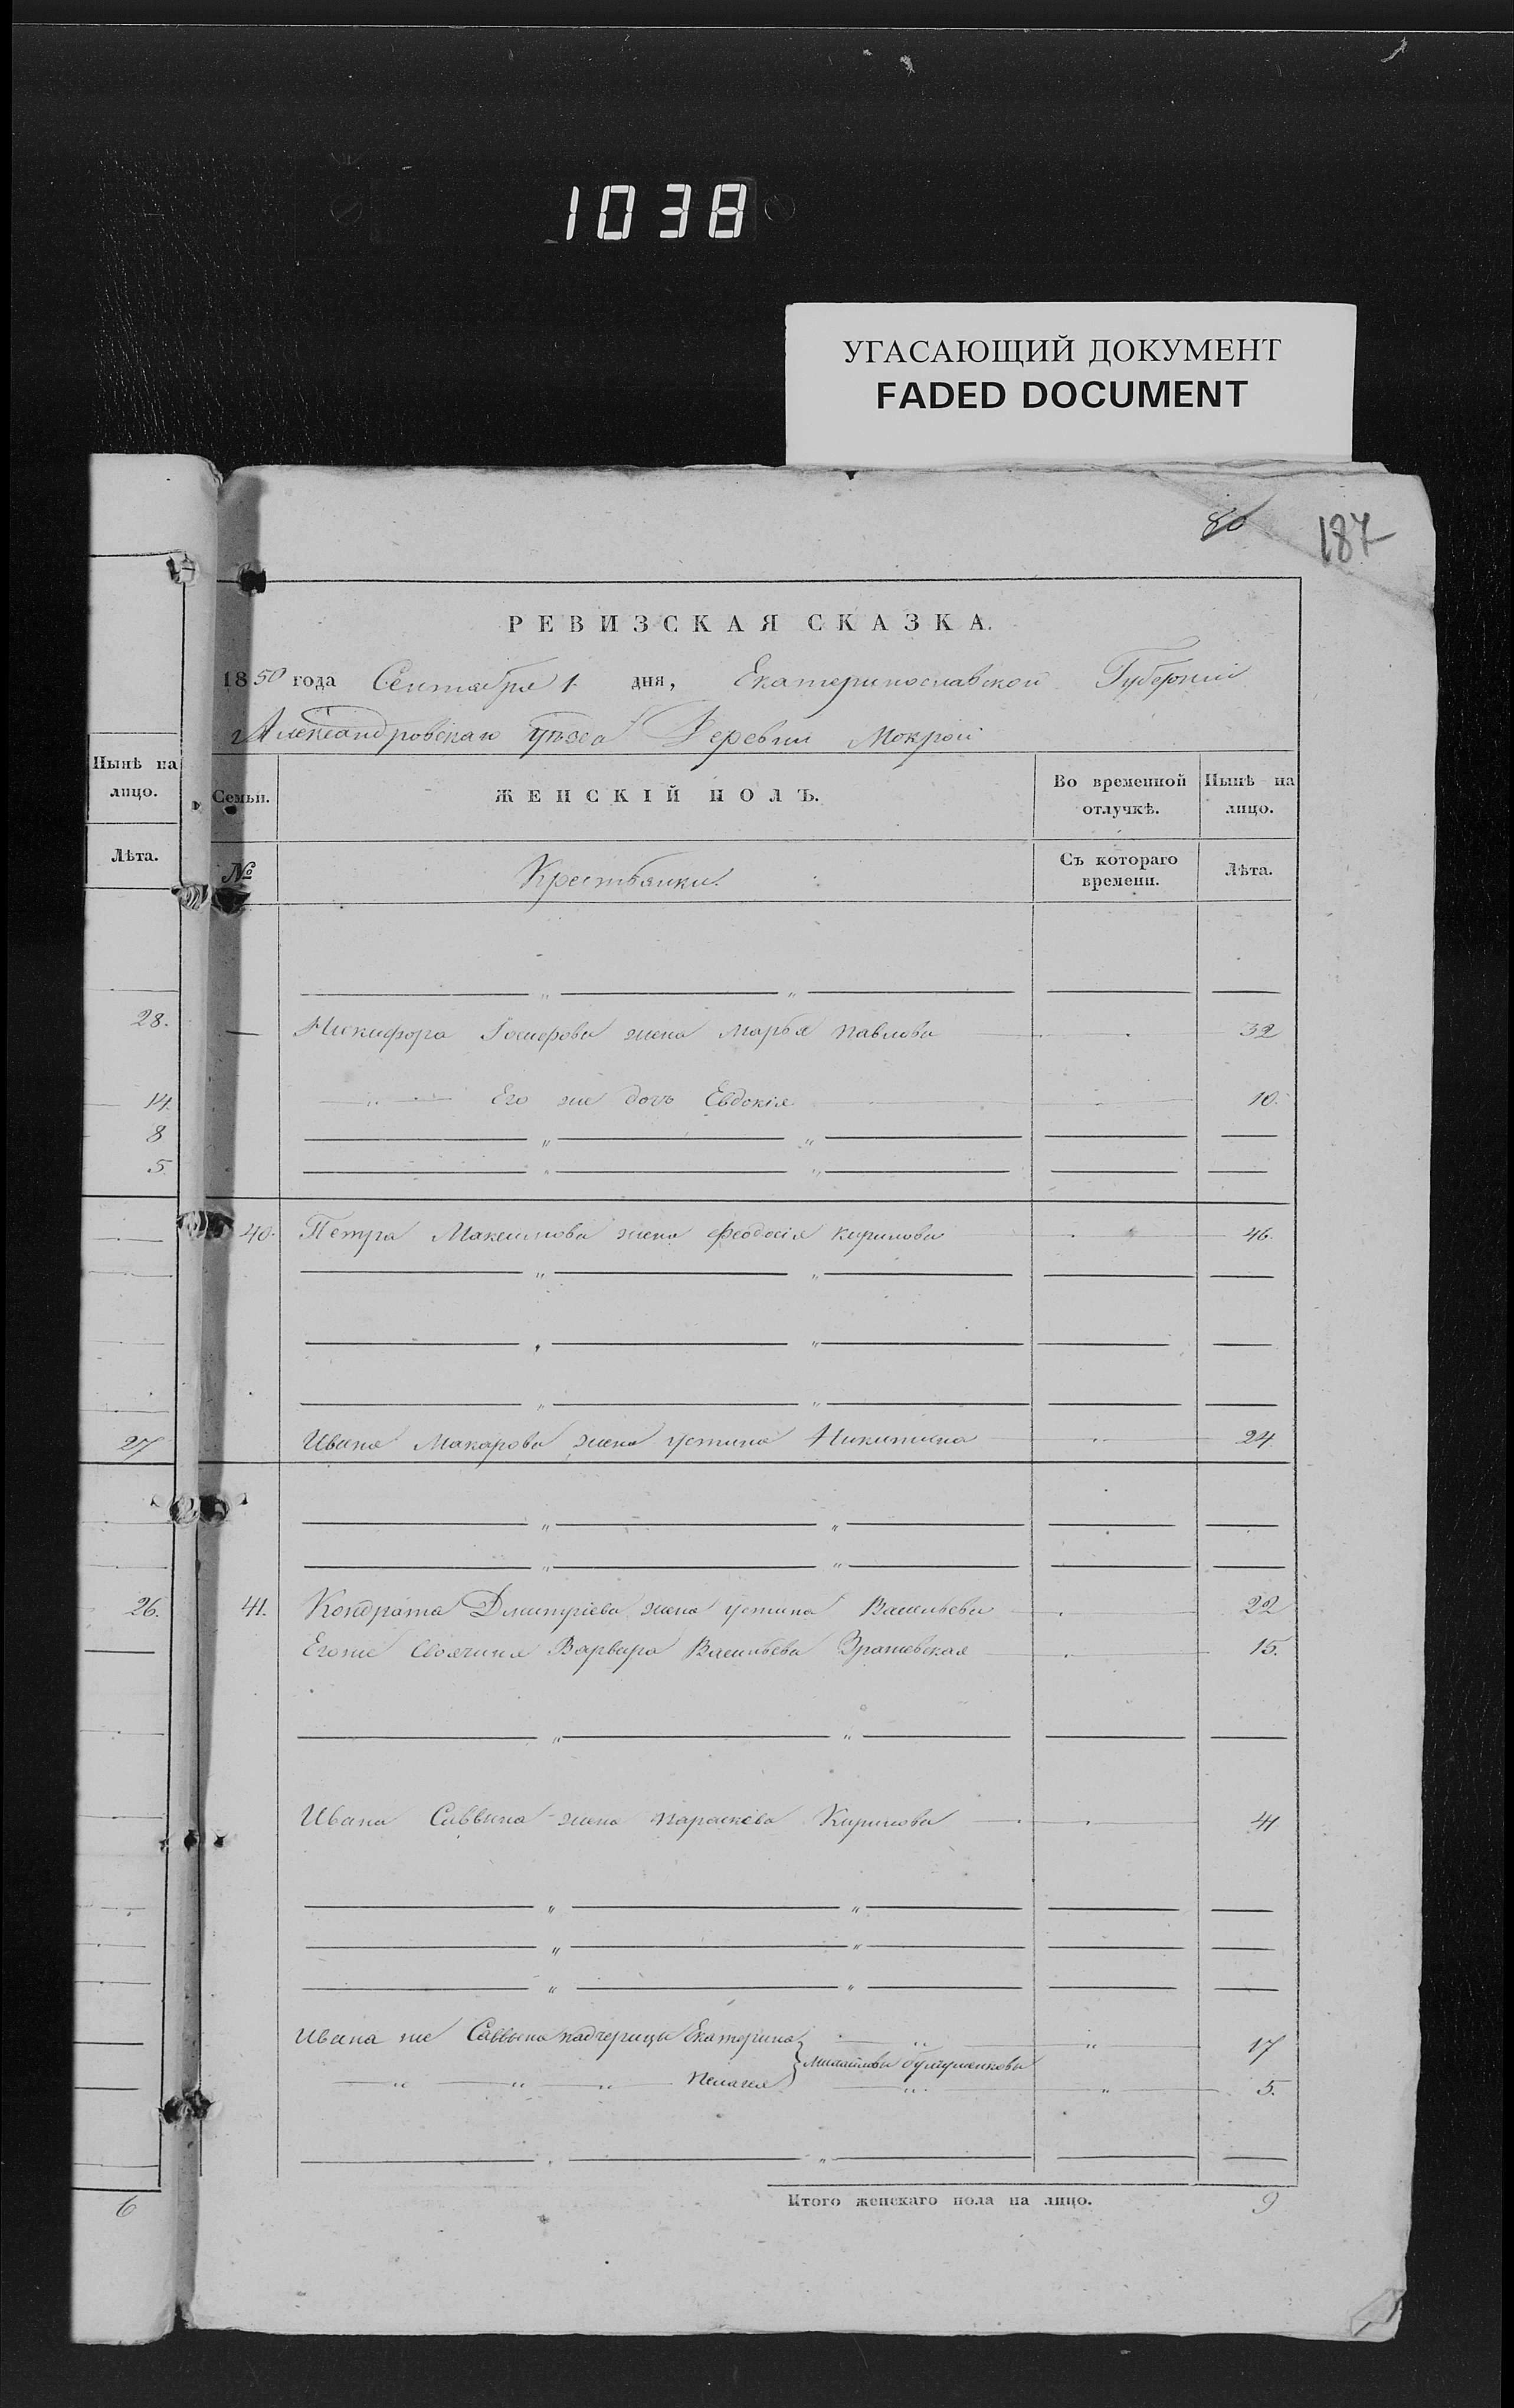 1038
УГАСАЮЩИЙ ДОКУМЕНТ
FADED DOCUMENT
80
187
РЕВИЗСКАЯ СКАЗКА.
1850 года Сентября 1 дня, Екатеринославской Губерніи
Александровскаго уѣзда Деревни Мокрой
Нынѣ на лицо.
Лѣта.
28.
14.
8
5.
27
26.
6
Семьи. ЖЕНСКІЙ ПОЛЪ. Во временной отлучкѣ. Нынѣ на лицо.
№ Крестьянки. Съ котораго времени. Лѣта.
Никифора Іосифова жена Марья Павлова 32
Его же дочь Евдокія 10.
40. Петра Максимова жена Феодосія Кирилова 46.
Ивана Макарова жена Устина Никитина 24
41. Кондрата Дмитріева жена Устина Васильева 22
Егоже Своячиня Варвара Васильева 15.
Ивана Саввина жена Параскева Кирилова 41
Ивана же Саввина падчерицы Екатерина 17
Михайловы
Пелагея 5.
Итого женскаго пола на лицо. 9